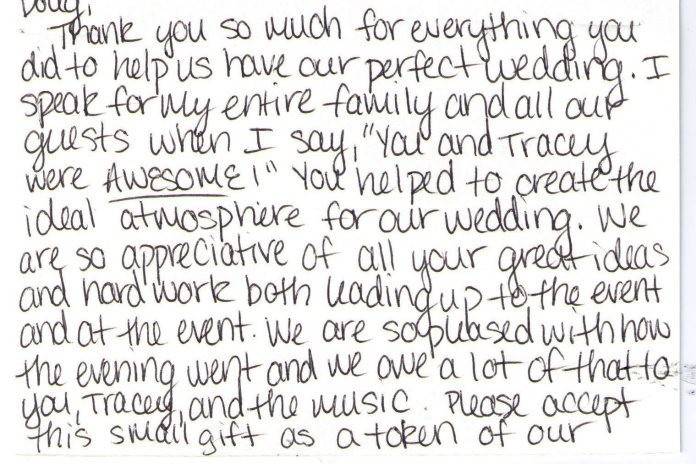 Doug,
Thank you so much for everything you
did to help us have our perfect wedding. I
speak for my entire family and all our
guests when I say, "You and Tracey
were AWESOME!" You helped to create the
ideal atmosphere for our wedding. We
are so appreciative of all your great ideas
and hard work both leading up to the event
and at the event. We are so pleased with how
the evening went and we owe a lot of that to
you, Tracey, and the music. Please accept
this small gift as a token of our